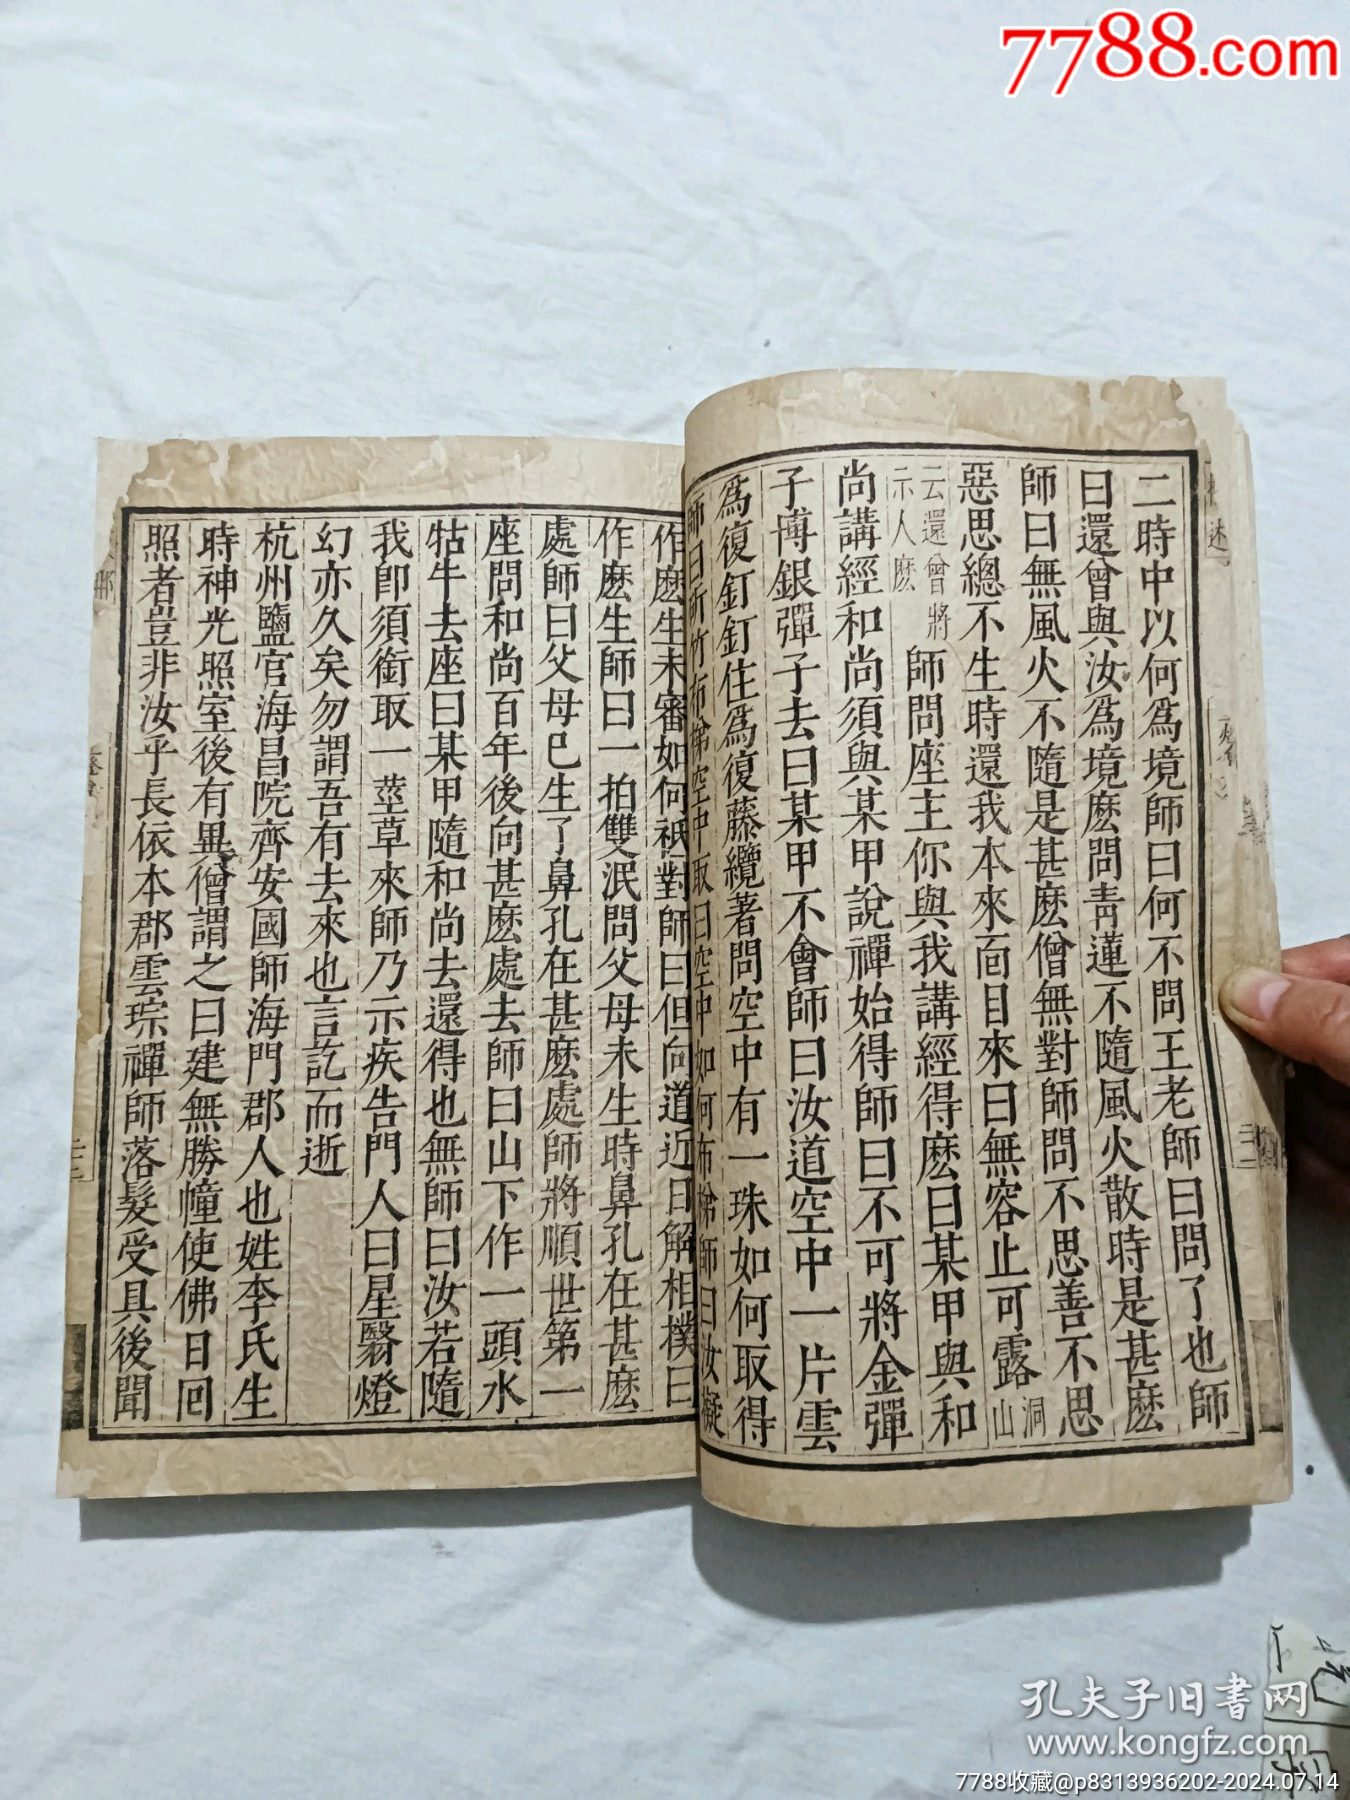 7788.com
二時中以何爲境師曰何不問王老師曰問了也師
曰還曾與汝爲境麽問青蓮不隨風火散時是甚麽
師曰無風火不隨是甚麽僧無對師問不思善不思
惡思總不生時還我本來面目來曰無容止可露洞山
云還曾將示人麽師問座主你與我講經得麽曰某甲與和
尚講經和尚須與某甲說禪始得師曰不可將金彈
子博銀彈子去曰某甲不會師曰汝道空中一片雲
爲復釘釘住爲復藤纜著問空中有一珠如何取得
師曰斫竹布梯空中取曰空中如何布梯師曰汝擬
作麽生未審如何祇對師曰但向道近日解相撲曰
作麽生師曰一拍雙泯問父母未生時鼻孔在甚麽
處師曰父母已生了鼻孔在甚麽處師將順世第一
座問和尚百年後向甚麽處去師曰山下作一頭水
牯牛去座曰某甲隨和尚去還得也無師曰汝若隨
我即須銜取一莖草來師乃示疾告門人曰星翳燈
幻亦久矣勿謂吾有去來也言訖而逝
杭州鹽官海昌院齊安國師海門郡人也姓李氏生
時神光照室後有異僧謂之曰建無勝幢使佛日回
照者豈非汝乎長依本郡雲琮禪師落髮受具後聞
孔夫子旧書网
www.kongfz.com
7788收藏@p8313936202-2024.07.14